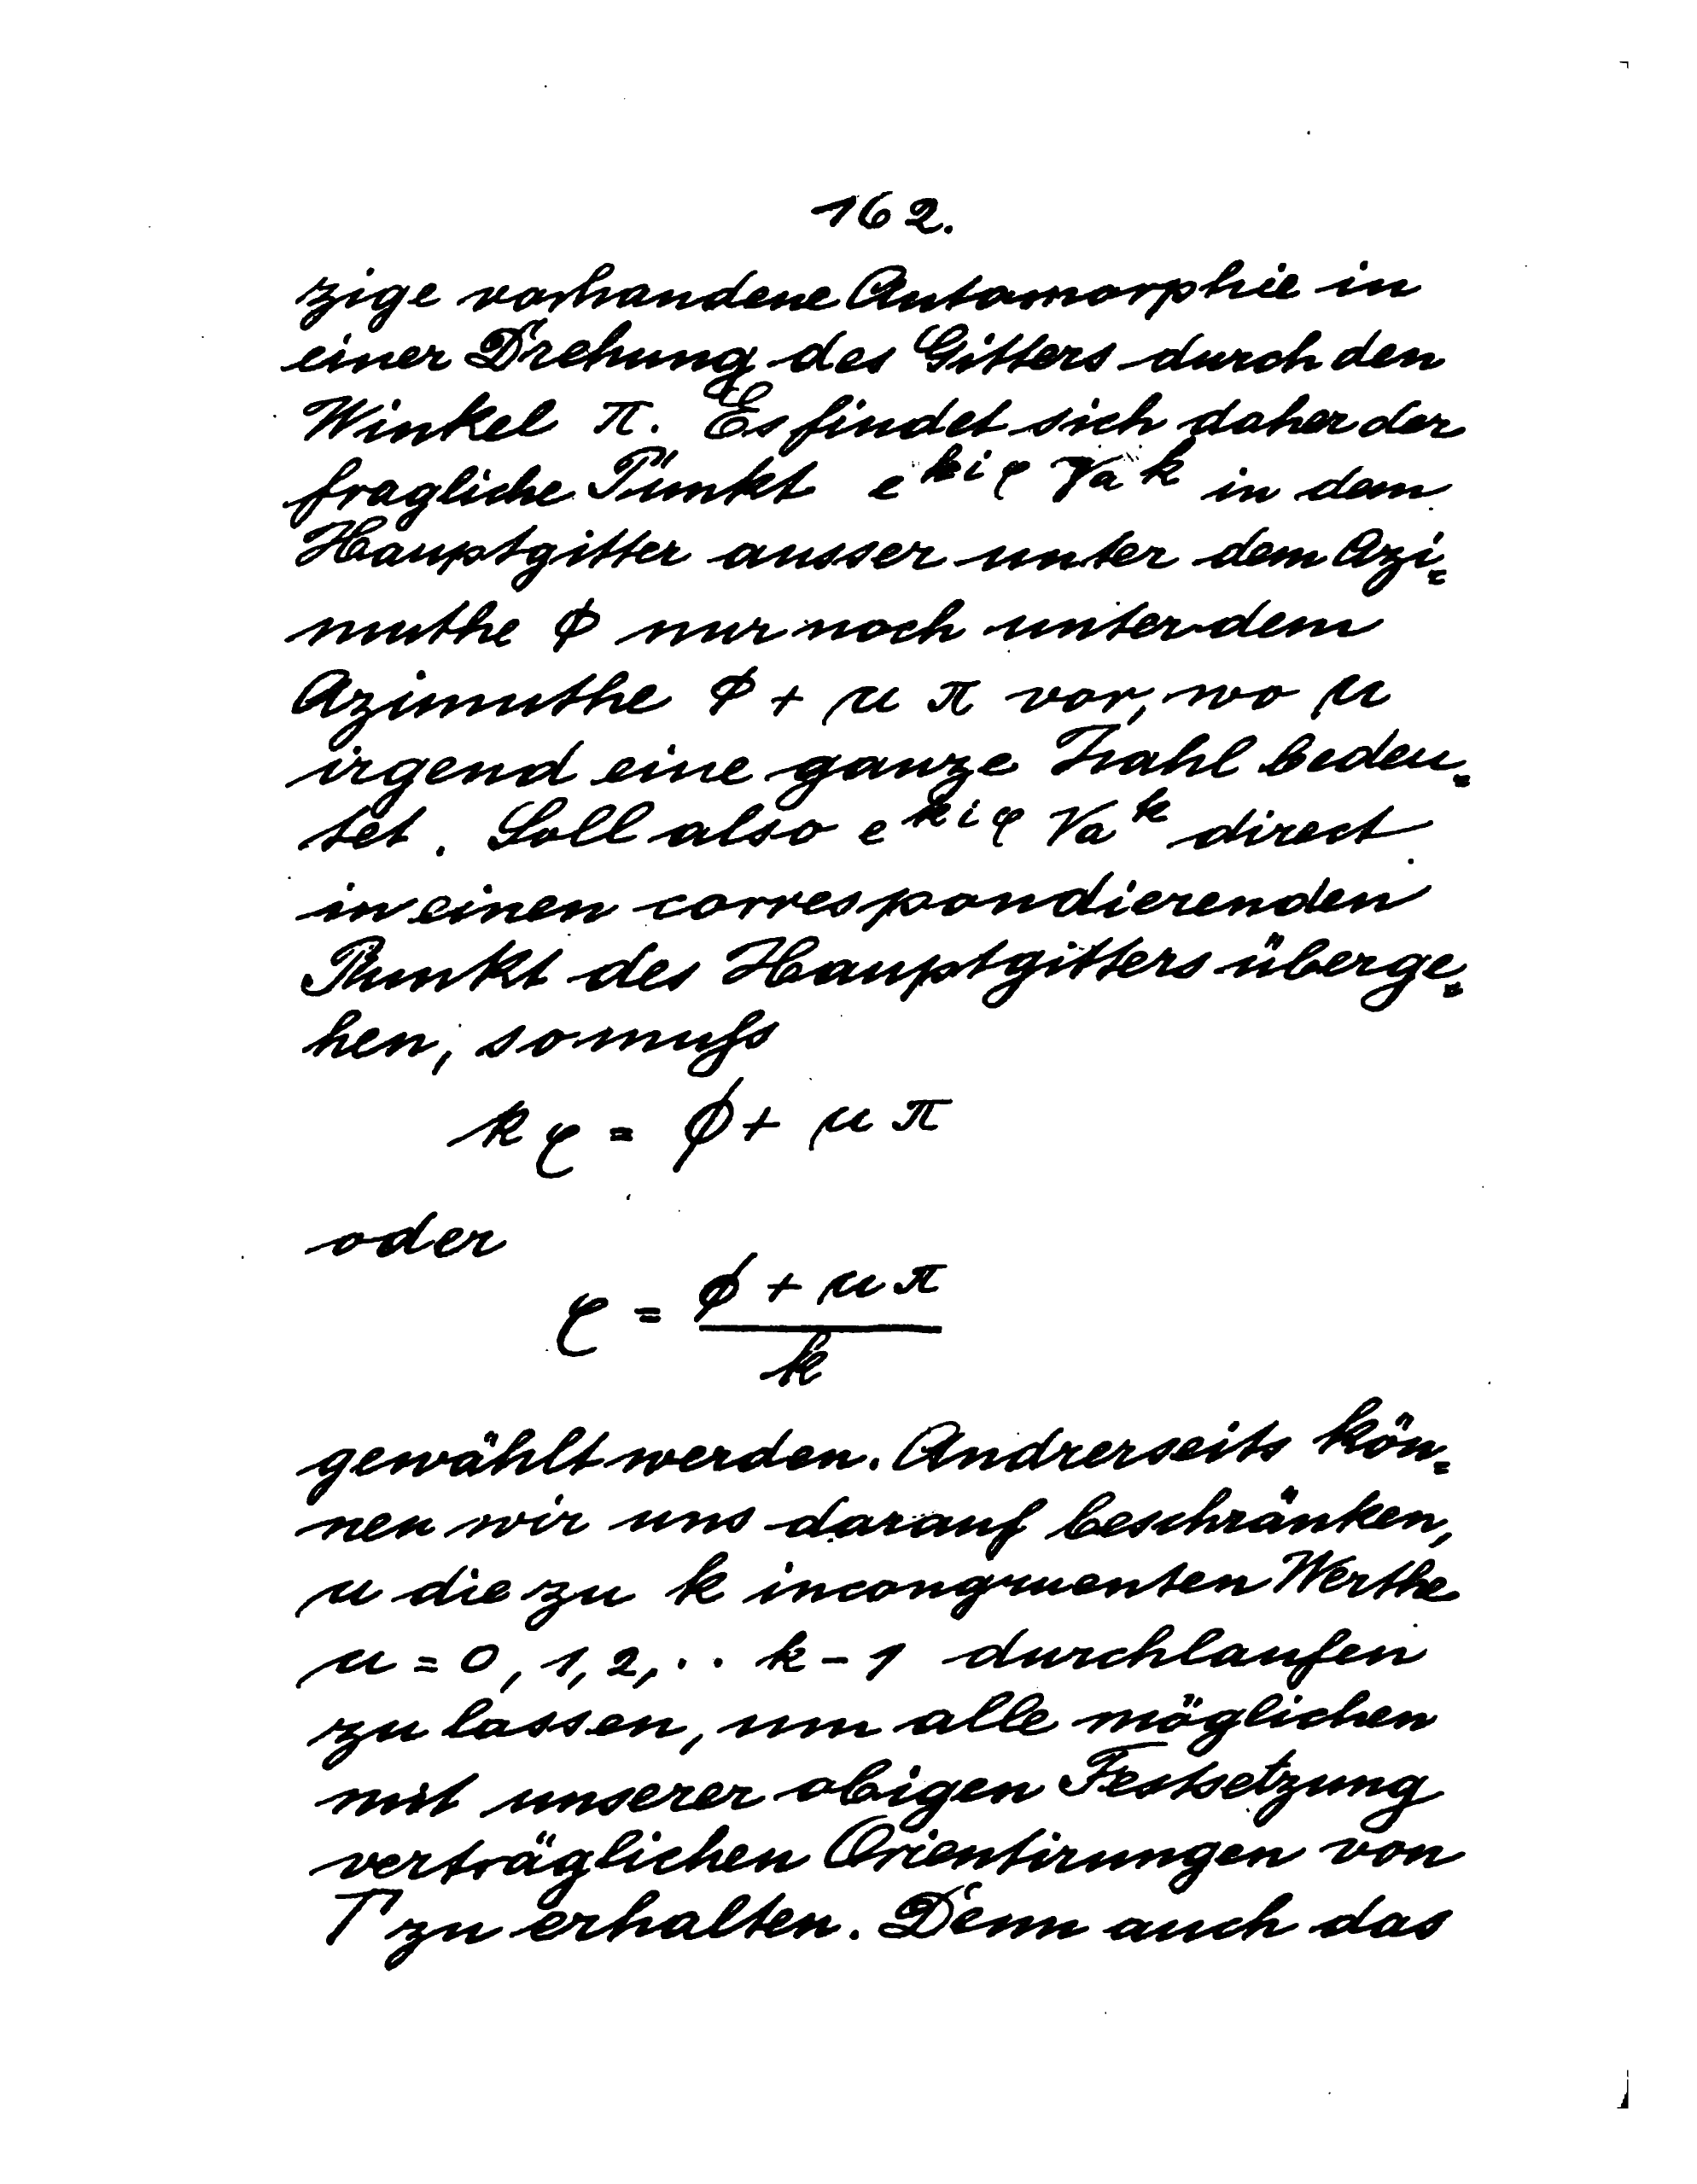 162.
zige vorhandene Automorphie in
einer Drehung des Gitters durch den
Winkel π. Es findet sich daher der
fragliche Punkt e^{kiφ} √a^k in dem
Hauptgitter ausser unter dem Azi=
muthe ϕ nur noch unter dem
Azimuthe ϕ + μ π vor, wo μ
irgend eine ganze Zahl bedeu=
tet. Soll also e^{kiφ} √a^k direct
in einen correspondierenden
Punkt des Hauptgitters überge=
hen, so muſs
kφ = ϕ + μ π
oder
φ = \frac{ϕ + μ π}{k}
gewählt werden. Andrerseits kön=
nen wir uns darauf beschränken,
μ die zu k incongruenten Werthe
μ = 0, 1, 2, .. k - 1 durchlaufen
zu lassen, um alle möglichen
mit unserer obigen Festsetzung
verträglichen Orientirungen von
Γ zu erhalten. Denn auch das